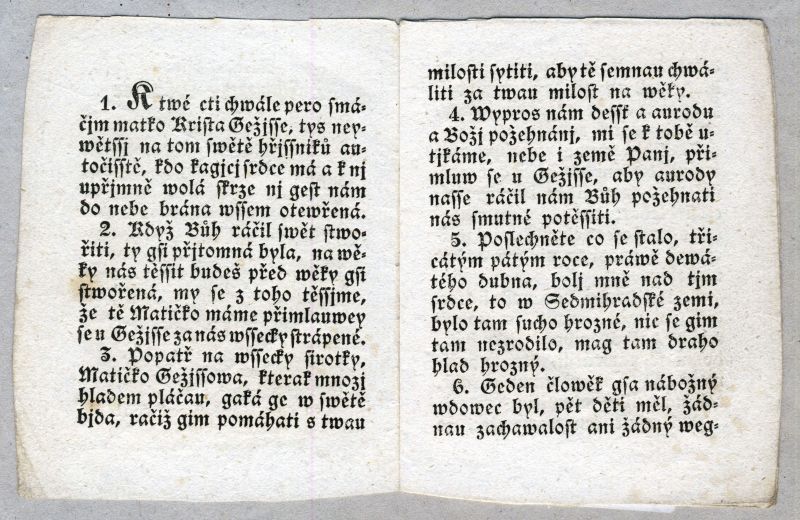 1. K twé cti chwále pero smá-
čjm matko Krista Gežjsse, tys ney-
wětssj na tom swětě hřjssnjků au-
točisstě, kdo kagjcj srdce má a k nj
upřjmně wolá skrze nj gest nám
do nebe brána wssem otewřená.
2. Když Bůh ráčil swět stwo-
řiti, ty gsi přjtomná byla, na wě-
ky nás těssit budeš před wěky gsi
stwořená, my se z toho těssjme,
že tě Matičko máme přimlauwey
se u Gežjsse za nás wssecky strápené.
3. Popatř na wssecky sirotky,
Matičko Gežjssowa, kterak mnozj
hladem pláčau, gaká ge w swětě
bjda, račiž gim pomáhati s twau
milosti sytiti, aby tě semnau chwá-
liti za twau milost na wěky.
4. Wypros nám desst a aurodu
a Božj požehnánj, mi se k tobě u-
tjkáme, nebe i země Panj, při-
mluw se u Gežjsse, aby aurody
nasse ráčil nám Bůh požehnati
nás smutné potěssiti.
5. Poslechněte co se stalo, tři-
cátým pátým roce, práwě dewá-
tého dubna, bolj mně nad tjm
srdce, to w Sedmihradské zemi,
bylo tam sucho hrozné, nic se gim
tam nezrodilo, mag tam draho
hlad hrozný.
6. Geden člowěk gsa nábožný
wdowec byl, pět děti měl, žád-
nau zachawalost ani žádný weg-